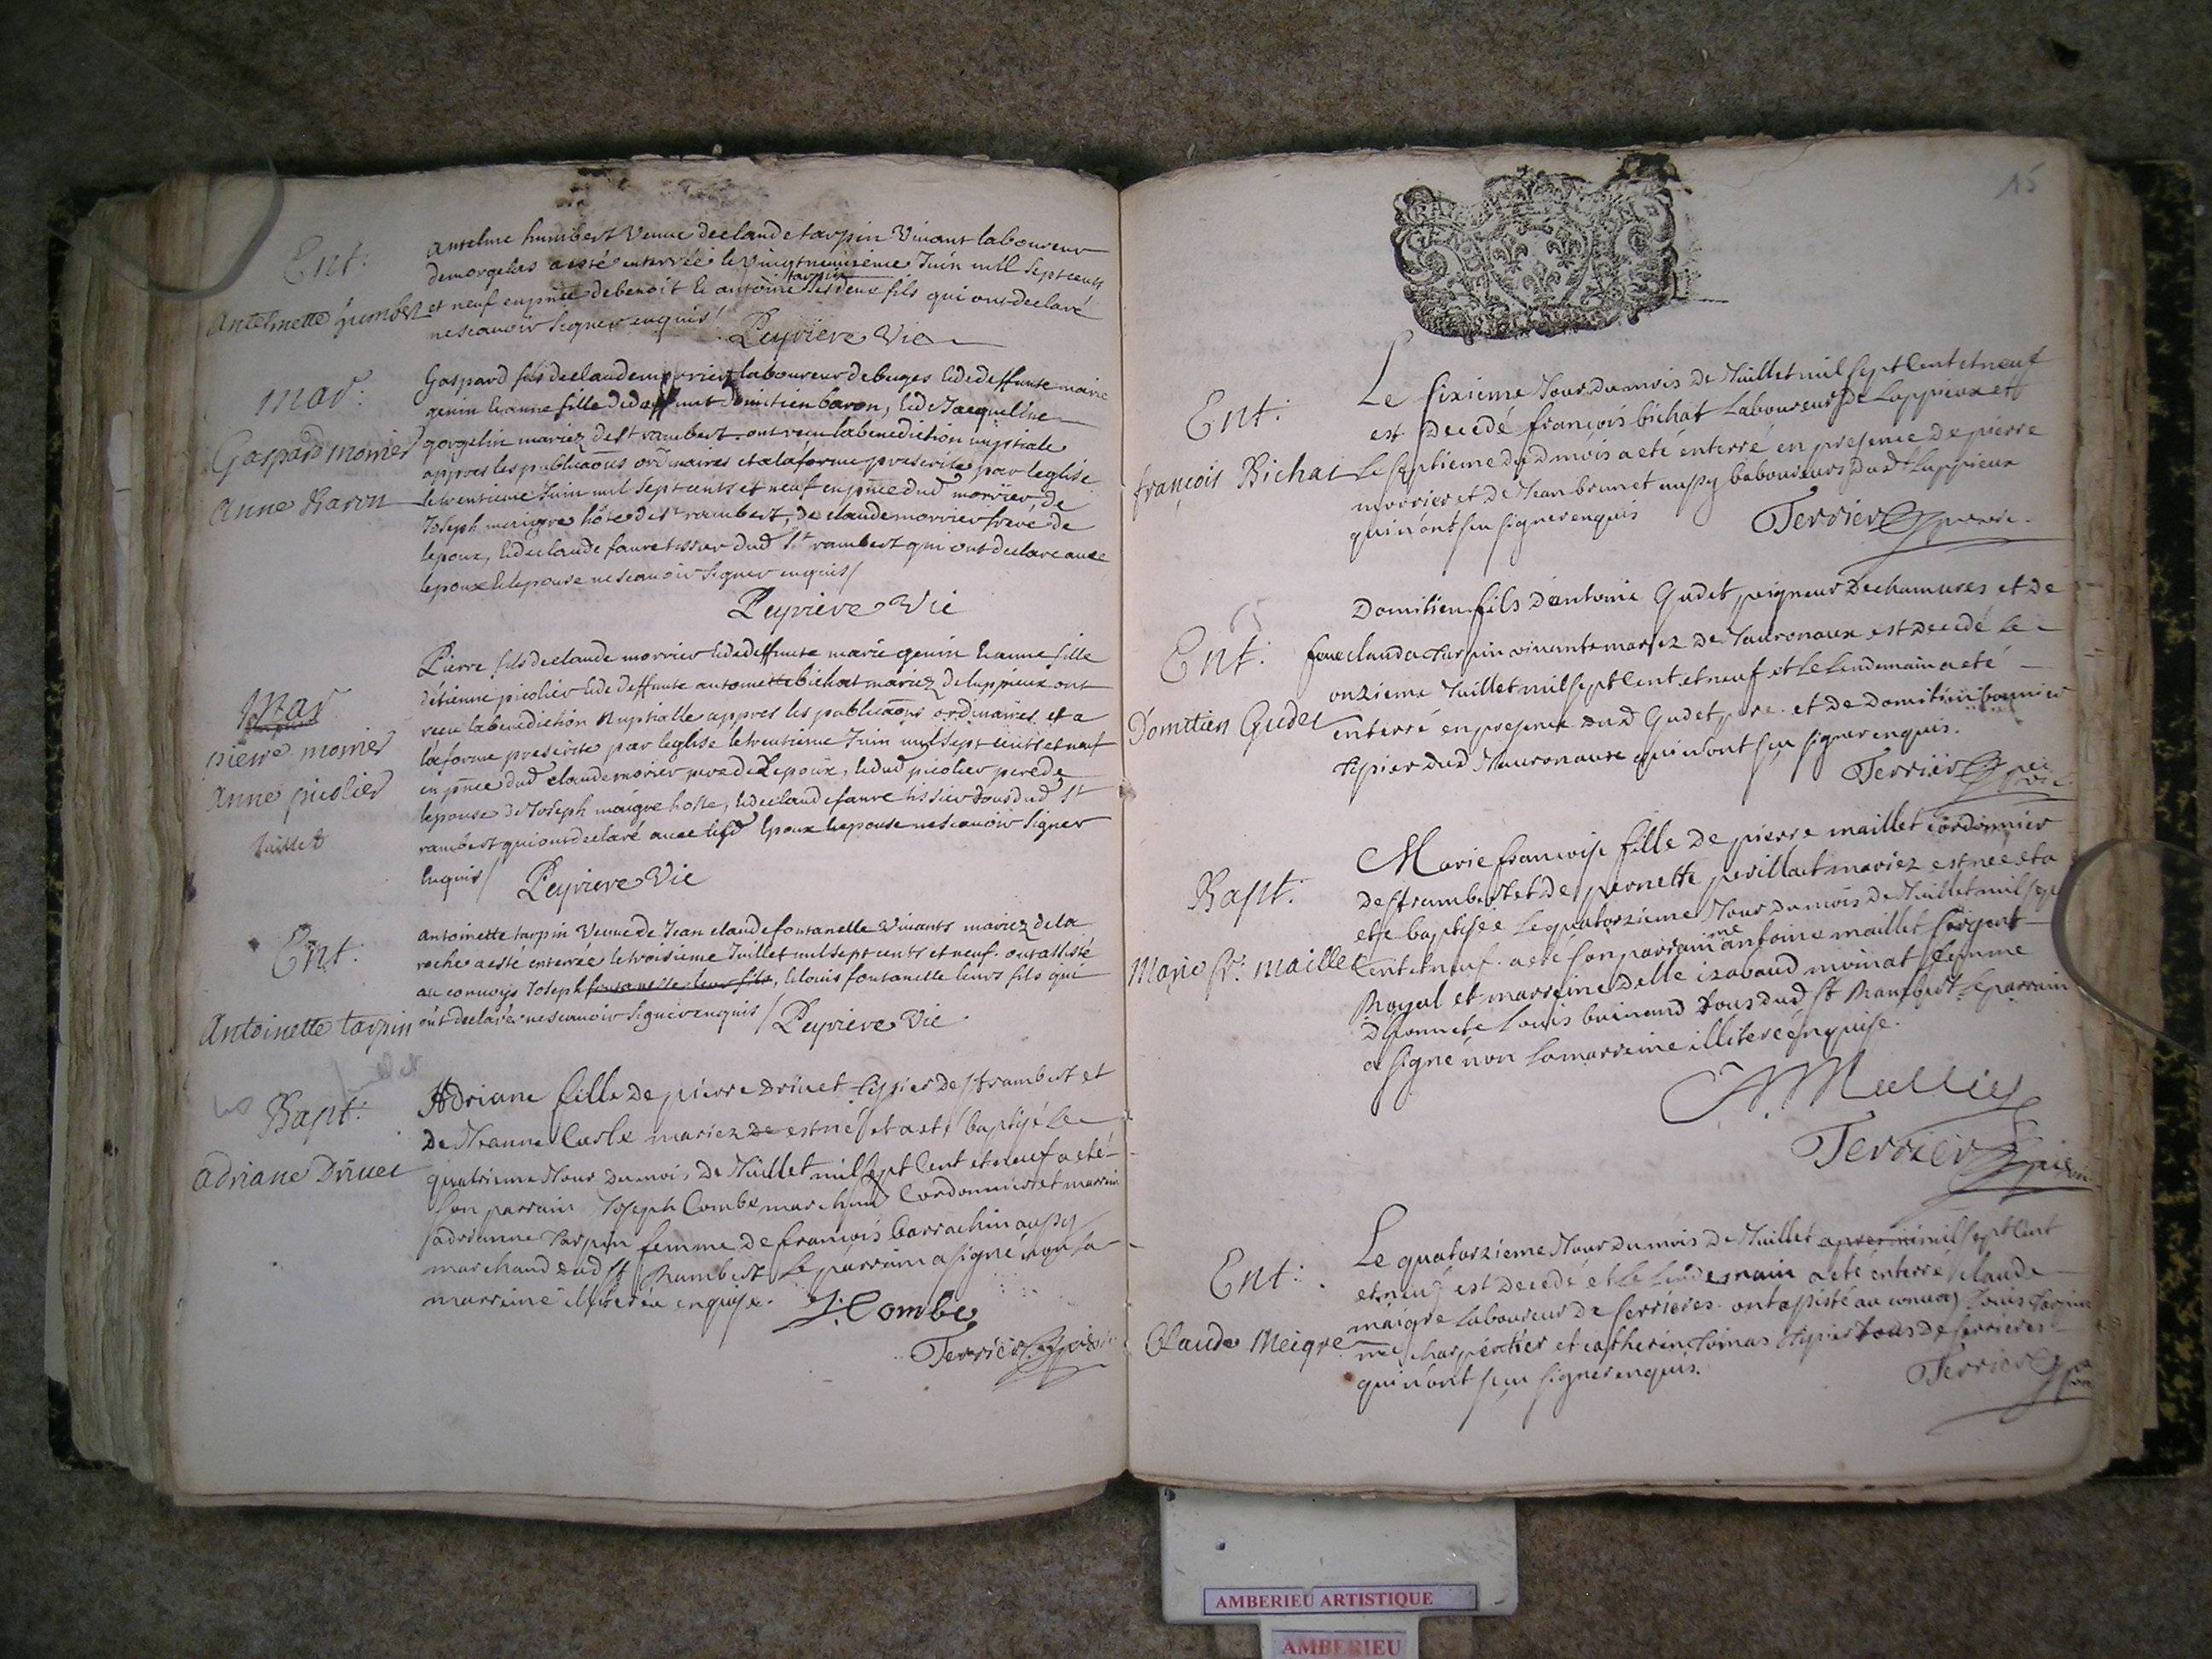 Ent:
Antelmette humbert
Antelme humbert veuve de claude tarpin vivant laboureur
de morgelas a esté enterrée le vingtneuvieme Juin mil sept cents
et neuf en pnce de benoit & antoine tarpin ses deux fils qui ont declaré
ne scavoir signer enquis /
Peyriere Vic
mar:
Gaspard morrier
Anne Baron
Gaspard fils de claude morrier laboureur de buges & de deffunte marie
genin & anne fille de deffunt domitien baron, & de Jacqueline
gorgelin mariez de st rambert ont receu la benediction nuptiale
appres les publicaons ordinaires et a la forme prescrite par leglise
le trentieme Juin mil sept cents et neuf en pnce dud morrier, de
Joseph meigre hôte de st rambert, de claude morrier frere de
lepoux, & de claude faure tissier dud st rambert qui ont declare avec
lepoux & lepouse ne scavoir signer enquis /
Peyriere Vic
Mar
pierre morrier
Anne picolier
Juillet
Pierre fils de claude morrier & de deffunte marie genin & anne fille
detienne picolier & de deffunte antoinette bichat mariez de luppieux ont
receu la benediction nuptialle appres les publicaons ordinaires et a
la forme prescrite par leglise le trentieme Juin mil sept cents et neuf
en pnce dud claude morier pere de lepoux, & dud picolier pere de
lepouse de Joseph maigre hoste, & de claude faure tissier tous dud st
rambert qui ont declaré avec lesd epoux & epouse ne scavoir signer
enquis / Peyriere Vic
Ent:
Antoinette tarpin
antoinette tarpin veuve de Jean claude fontanelle vivants mariez de la
roche a esté enterrée le troisieme Juillet mil sept cents et neuf. ont assisté
au convoys Joseph fontanelle leur fils, & louis fontanelle leurs fils qui
ont declarés ne scavoir signer enquis / Peyriere Vic.
Juillet
Bapt:
Adriane Druet
Adriane fille de pierre Druet tissier de st rambert et
de Jeanne Carle mariez de est né et a eté baptisé le
quatrieme Jour du mois de Juillet mil sept Cent et neuf a eté
son parrain Joseph Combe marchand Cordonnier et marraine
adrianne tarpin femme de françois barrachin aussy
marchand dud st Rambert le parrain a signé non la
marraine illiterée enquise.
J: Combe
Terrier
15
Ent:
françois Bichat
Le sixieme Jour du mois de Juillet mil sept Cent et neuf
est decedé françois bichat Laboureur de Luppieux et
le septieme dud mois a eté enterré en presence de pierre
morrier et de Jean brunet aussy Laboureurs dud Luppieux
qui n'ont sçu signer enquis
Terrier
Ent:
Domitien Gudet
Domitien fils d'antoine Gudet peigneur de chanvres et de
feue clauda tarpin vivants mariez de Javornoux est decedé le
onzieme Juillet mil sept Cent et neuf et le lendemain a eté
enterré en presence dud Gudet pere et de Domitien bonnier
tissier dud Javornoux qui n'ont sçu signer enquis.
Terrier
Bapt:
Marie fr: maillet
Marie françoise fille de pierre maillet Cordonnier
de st rambert et de pernette perillat mariez est née et a
eté baptisée le quatorzieme Jour du mois de Juillet mil sept
cent et neuf. a eté son parrain me antoine maillet sergent
Royal et marraine delle izabaud moinat femme
d'honnete Louis buinand tous dud st Rambert le parrain
a signé non la marraine illiterée enquise.
A. Mallliet
Terrier
Ent:
Claude Meigre
Le quatorzieme Jour du mois de Juillet mil sept Cent
et neuf est decedé et le lendemain a eté enterré claude
maigre Laboureur de serrieres. ont assisté au convoy Louis tarpin
me charpentier et catherin tomas tissier tous de serrieres
qui n'ont sçu signer enquis.
Terrier
AMBERIEU ARTISTIQUE
AMBERIEU